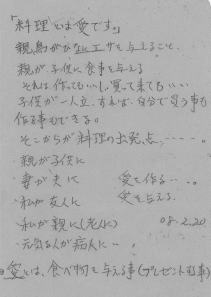 「料理とは愛です。」
親鳥がひなにエサを与えること、
親が、子供に食事を与える
それは作ってもいいし、買って来てもいい
子供が一人立ちすれば、自分で買う事も
作る事もできる。
そこからが料理の出発点、-----。
・親が子供に
・妻が夫に 愛を作る---。
・私が友人に 愛を与える
・私が親に(老人に) 08.2.20
・元気な人が病人に--。
愛とは、食べ物を与える事(プレゼントする事)